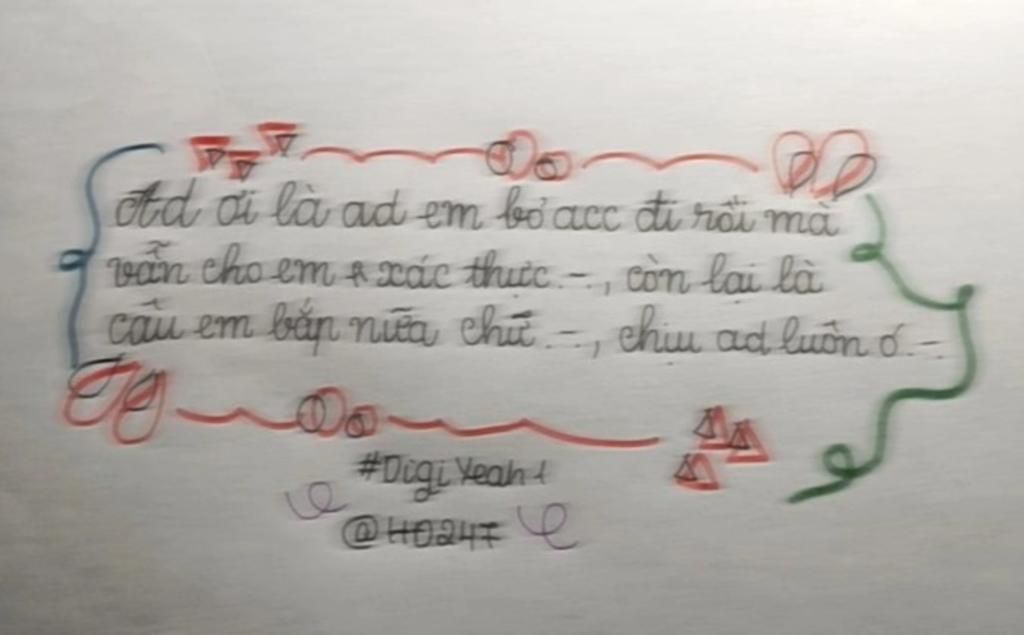 Ad ơi là ad em bỏ acc đi rồi mà
vẫn cho em * xác thực .-., còn lại là
câu em bắp nữa chứ .-., chịu ad luôn ó .-.
#DigiYeah1
@HO247